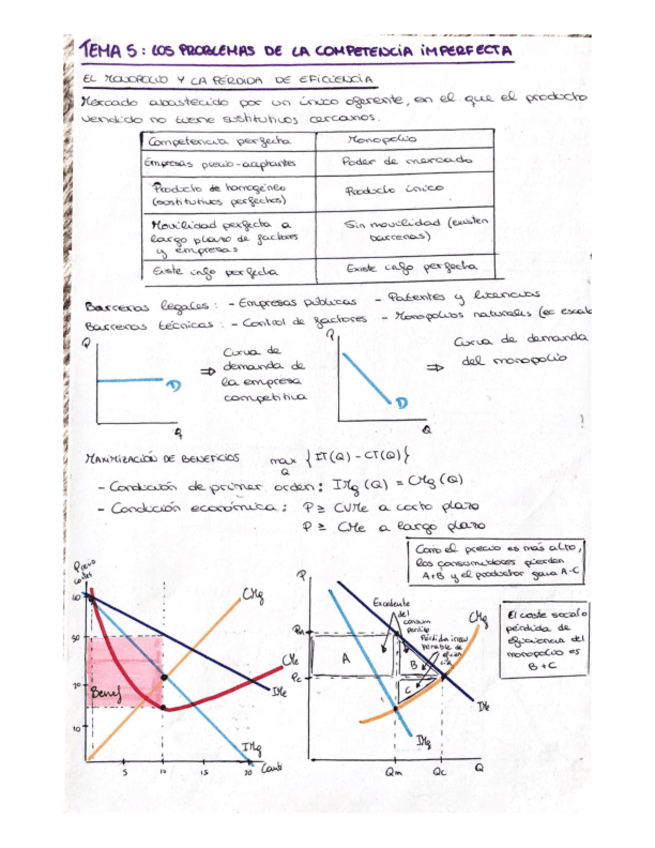 TEMA 5: LOS PROBLEMAS DE LA COMPETENCIA IMPERFECTA
EL MONOPOLIO Y LA PÉRDIDA DE EFICIENCIA
Mercado abastecido por un único oferente, en el que el producto
vendido no tiene sustitutivos cercanos.
Competencia perfecta Monopolio
Empresas precio-aceptantes Poder de mercado
Producto de homogéneo Producto único
(sustitutivos perfectos)
Movilidad perfecta a Sin movilidad (existen
largo plazo de factores barreras)
y empresas
Existe info perfecta Existe info perfecta
Barreras legales: - Empresas públicas - Patentes y licencias
Barreras técnicas: - Control de factores - Monopolios naturales (ec escala
Q
D
q
⇒ Curva de
demanda de
la empresa
competitiva
Q
D
Q
⇒ Curva de demanda
del monopolio
MAXIMIZACIÓN DE BENEFICIOS max { IT(Q) - CT(Q) }
Q
- Condición de primer orden: IMg (Q) = CMg (Q)
- Condición económica: P ≥ CVMe a corto plazo
P ≥ CMe a largo plazo
Como el precio es más alto,
los consumidores pierden
A+B y el productor gana A-C
El coste social o
pérdida de
eficiencia del
monopolio es
B + C
Precio
costes
CMg
CMe
IMe
IMg
Benef
10
5 10 15 20 Cant
P
Excedente
del
consum
perdido
Pérdida irrecu
perable de
eficien
cia
Pm
Pc
A
B
C
CMg
IMe
IMg
Qm Qc Q